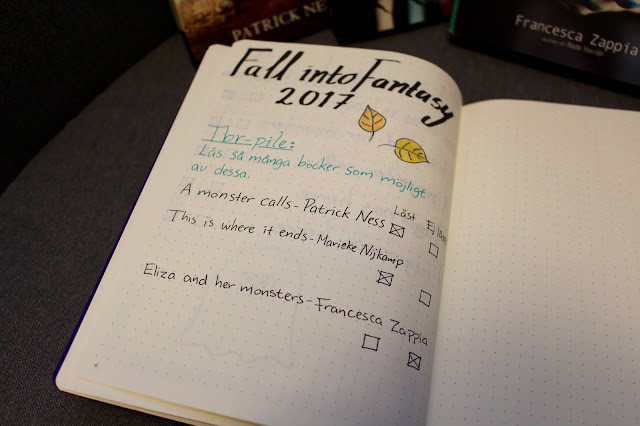 PATRICK NE
Francesca Zappia
Fall into Fantasy
2017
Tbr-pile:
Läs så många böcker som möjligt
av dessa.
Läst Ej läst
A monster calls - Patrick Ness
This is where it ends - Marieke Nijkamp
Eliza and her monsters - Francesca Zappia